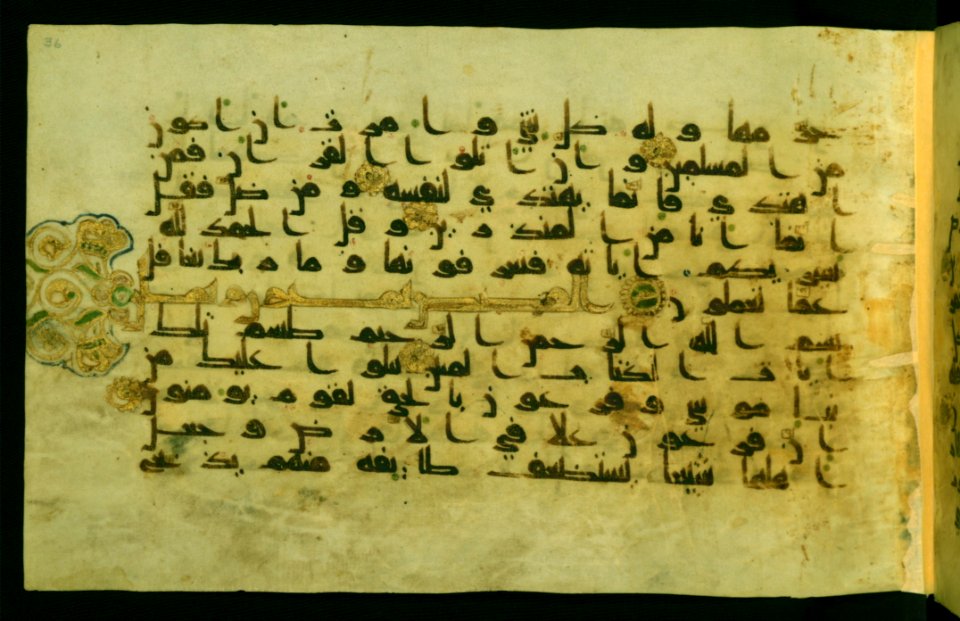 36
حرمها وله كل شي وامرت ان اكون
من المسلمين وان اتلوا القرن فمن
اهتدى فانما يهتدي لنفسه ومن ضل فقل
انما انا من المنذرين وقل الحمد لله
سيريكم ايته فتعرفونها وما ربك بغفل
عما تعملون
بسم الله الرحمن الرحيم طسم تلك
ايت الكتب المبين نتلوا عليك من
نبا موسى وفرعون بالحق لقوم يومنون
ان فرعون علا في الارض وجعل
اهلها شيعا يستضعف طايفه منهم يذبح